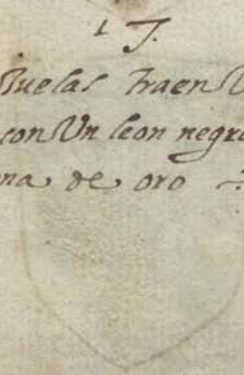 1 J.
uelas traen V
con Vn leon negro
na de oro